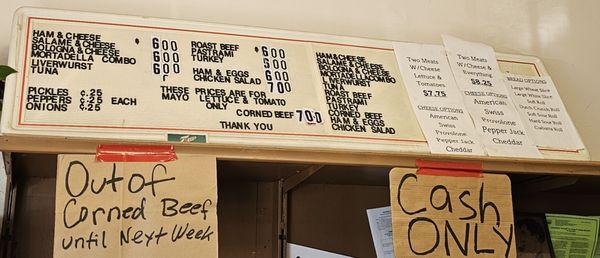 HAM & CHEESE
SALAME & CHEESE
BOLOGNA & CHEESE
MORTADELLA COMBO
LIVERWURST
TUNA
600
600
PICKLES c.25
PEPPERS c.25 EACH
ONIONS c.25
ROAST BEEF 600
PASTRAMI
TURKEY
HAM & EGGS
CHICKEN SALAD 700
THESE PRICES ARE FOR
MAYO LETTUCE & TOMATO
ONLY
CORNED BEEF 700
THANK YOU
HAM & CHEESE
SALAME & CHEESE
BOLOGNA & CHEESE
MORTADELLA COMBO
LIVERWURST
TUNA
ROAST BEEF
PASTRAMI
TURKEY
CORNED BEEF
HAM & EGGS
CHICKEN SALAD
Two Meats
W/Cheese
Lettuce &
Tomatoes
$7.75
CHEESE OPTIONS
American
Swiss
Provolone
Pepper Jack
Cheddar
Two Meats
W/Cheese &
Everything
$8.25
CHEESE OPTIONS
American
Swiss
Provolone
Pepper Jack
Cheddar
BREAD OPTIONS
Large Wheat Slice
Large White Slice
Soft Roll
Dutch Crunch Roll
Sourdough Roll
Soft Sour Roll
Hard Sour Roll
Ciabatta Roll
Out of
Corned Beef
until Next Week
Cash
ONLY